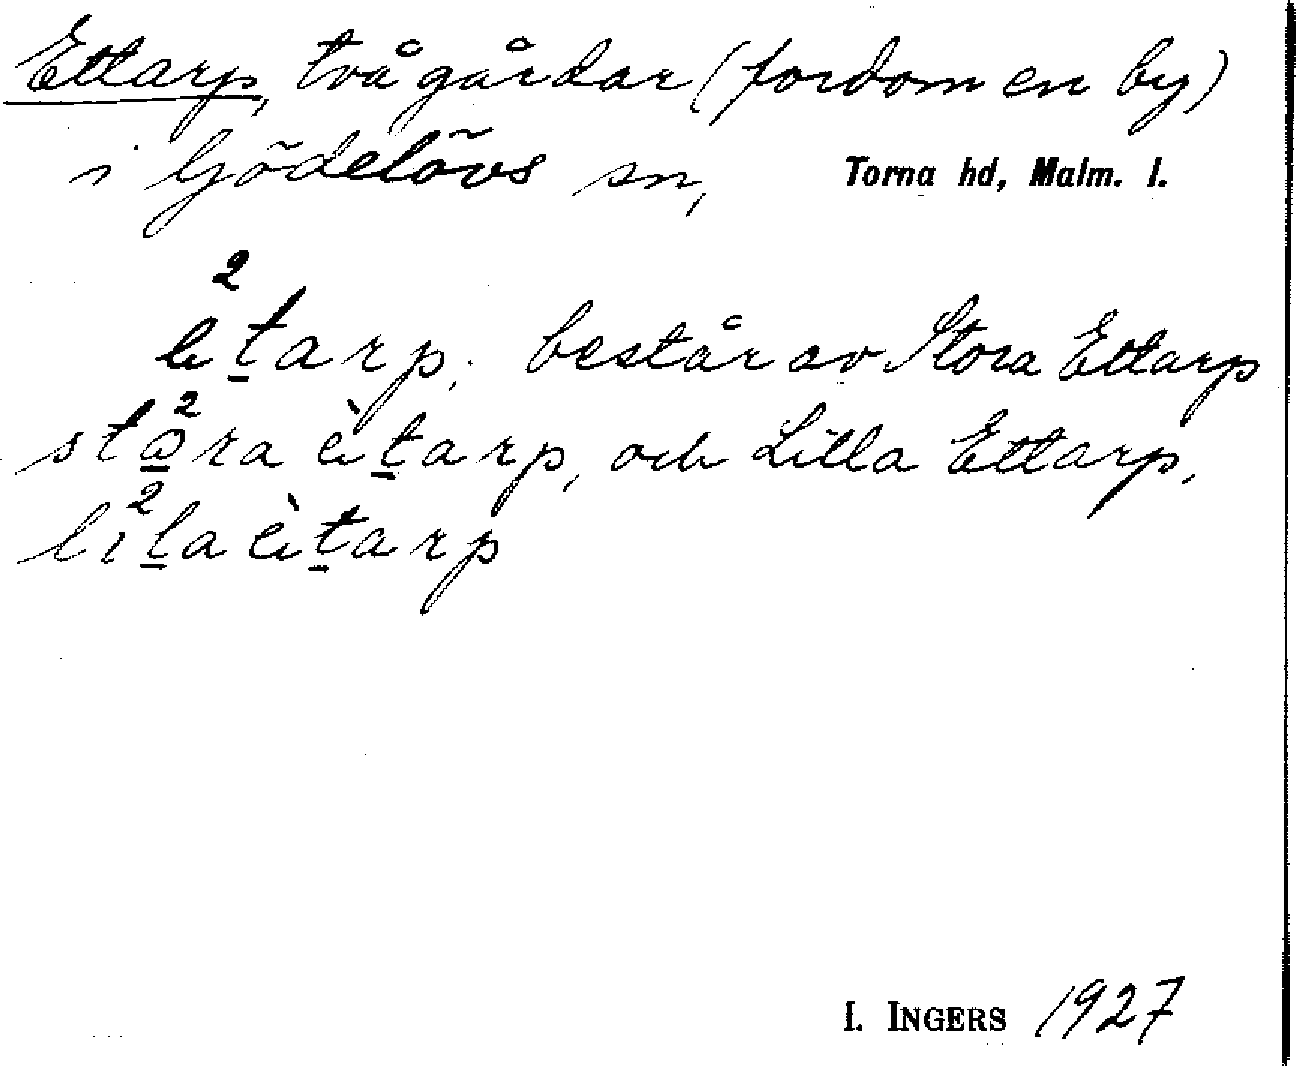 Ettarp, två gårdar (fordom en by)
i Gödelövs sn, Torna hd, Malm. l.
²èt̲arp; består av Stora Ettarp
stå̲²ra èt̲arp, och Lilla Ettarp,
li²l̲a èt̲arp
I. INGERS 1927